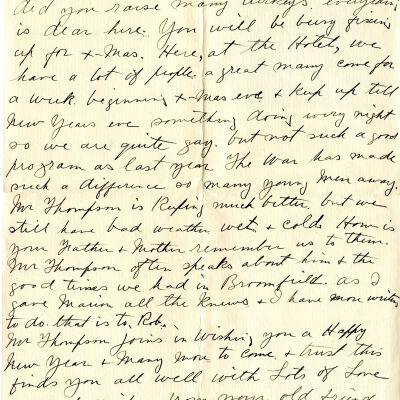 did you raise many turkeys everything
is dear here. You will be busy fixing
up for X-Mas. Here, at the Hotel, we
have a lot of people. a great many come for
a week. beginning X-Mas eve & keep up till
New Years eve something doing every night
so we are quite gay. but not such a good
program as last year The War has made
such a difference so many young Men away.
Mr Thompson is feeling much better but we
still have bad weather wet & cold. How is
your Father & Mother remember us to them.
Mr Thompson often speaks about him & the
good times we had in Broomfield. as I
gave Marion all the knews & I have more writing
to do. that is to, Rob.
Mr Thompson joins in Wishing you a Happy
New Year & Many More to come & trust this
finds you all well with Lots of Love
from your old friend